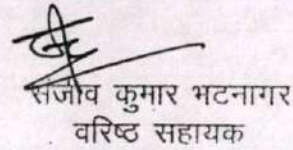 संजीव कुमार भटनागर
वरिष्ठ सहायक